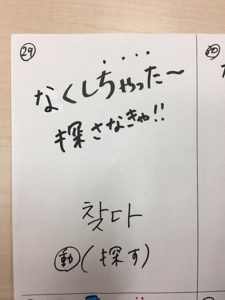 ㉙
なくしちゃった〜
探さなきゃ!!
찾다
動(探す)